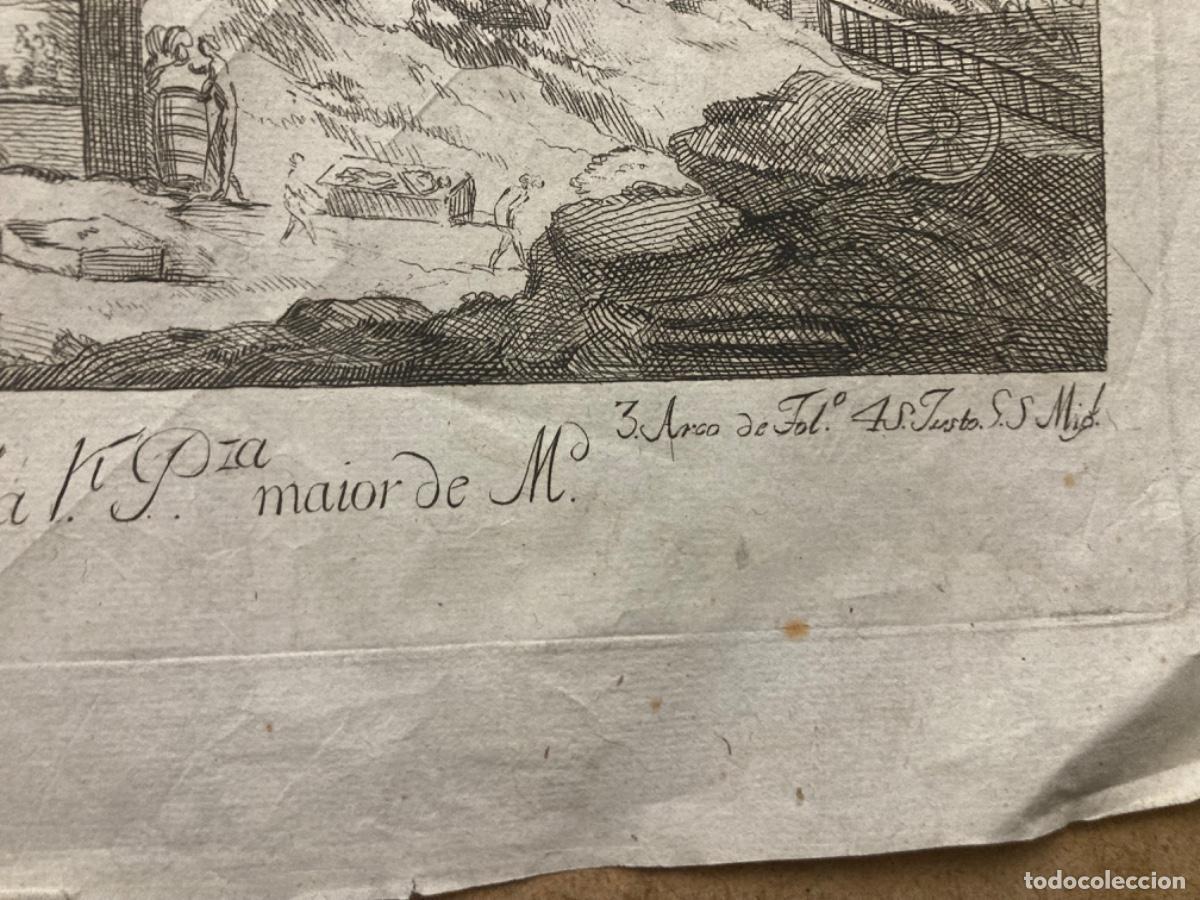 3. Arco de Tol.º 4. S. Justo. 5. S Mig.l
P.za maior de M.d
todocoleccion